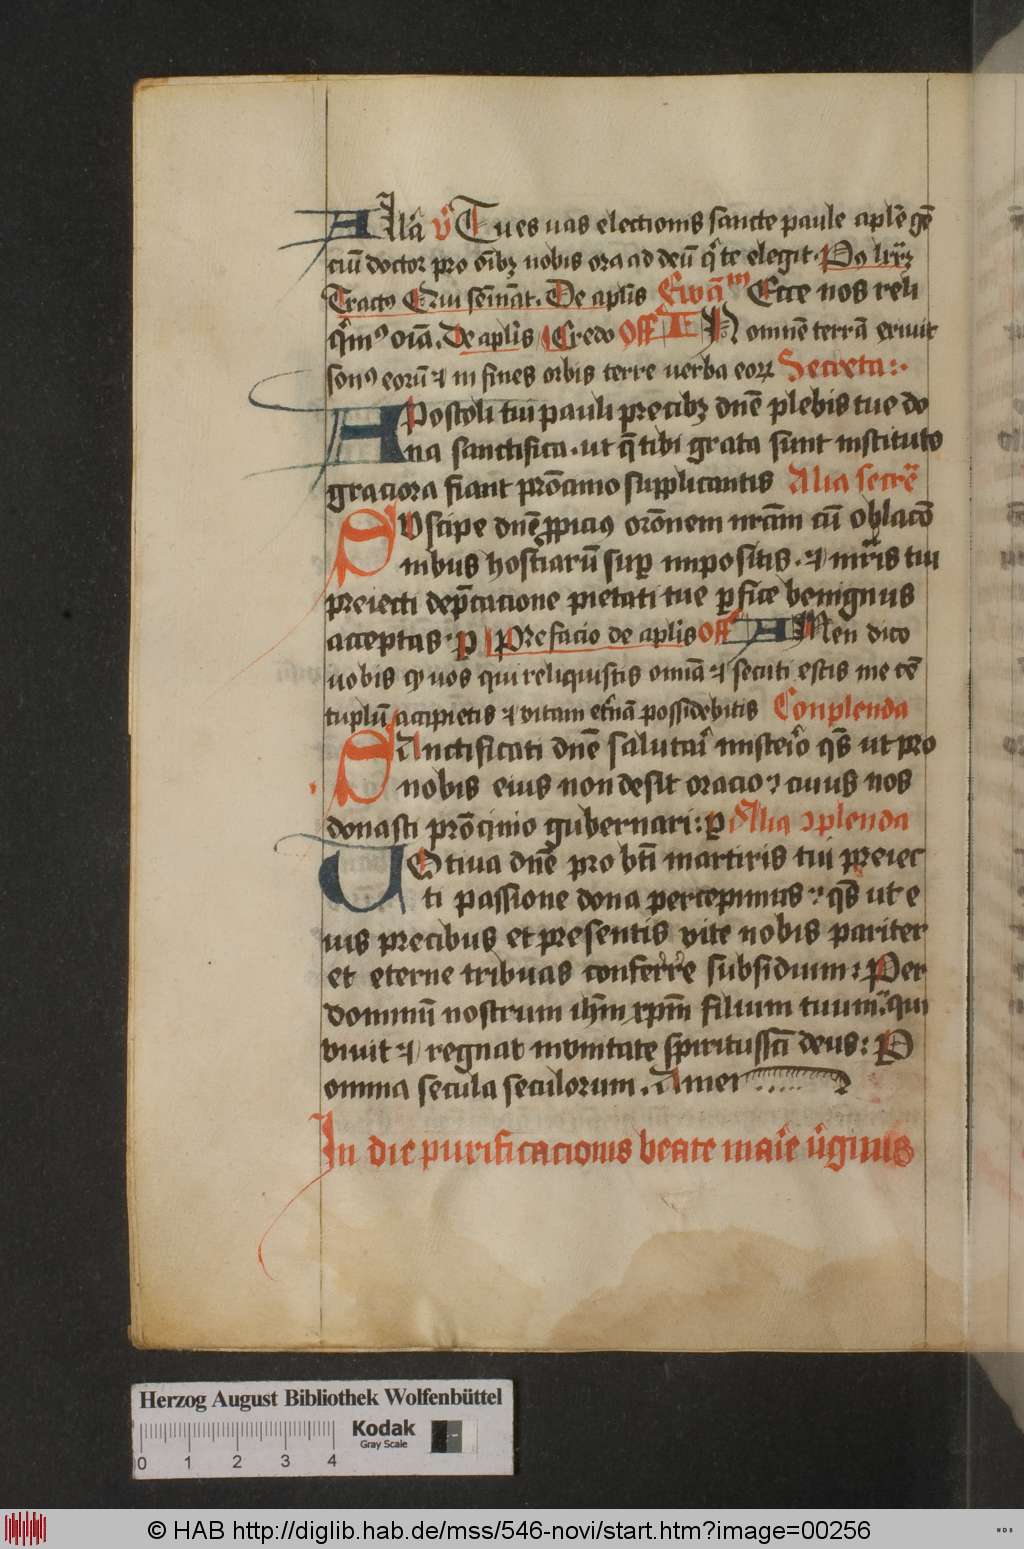 Alla℣ Tu es uas electionis sancte paule aplē gē
ciū doctor pro oībꝫ nobis ora ad deū qͥ te elegit · Pꝰ lxxͣ
Tractꝰ Qui semināt. De aplīs Ewāᵐ Ecce nos reli
qͥmꝰ oīa. De aplīs Credo Off IN omnem terrā exiuit
sonꝰ eorū ⁊ in fines orbis terre uerba eoꝝ Secreta:·
APostoli tui pauli precibꝫ dnē plebis tue do
na sanctifica · ut q̄ tibi grata sūnt instituto
graciora fiant prōcinio supplicantis Alia secrē
SUscipe dnē ꝓpiciꝰ orōnem nrām cū oblacō
nibus hostiarū suꝑ impositis · ⁊ mr̄is tui
preiecti dep̄cacione pietati tue ꝑfice benignus
acceptas · p Prefacio de aplīs Off AMen dico
uobis ꝙ uos qui reliquistis omīa ⁊ secuti estis me cē
tuplū accipietis ⁊ vitam etn̄ā possidebitis Conplenda
SAnctificati dnē salutaͥ misteͥo qs̄ ut pro
nobis eius non desit oracio ⁊ cuius nos
donasti prōcinio gubernari: ꝑ Alia ↄplenda
UOtiua dnē pro btī martiris tui preiec
ti passione dona percepimus ⁊ qs̄ ut e
ius precibus et presentis vite nobis pariter
et eterne tribuas conferre subsidium: Per
dominū nostrum ihm̄ xpm̄ filium tuum. qui
viuit ⁊ regnat in vnitate spiritussc̄i deus: P
omnia secula seculorum. Amen
In die purificacionis beate maͥe v̄ginis
Herzog August Bibliothek Wolfenbüttel
Kodak
Gray Scale
0 1 2 3 4
© HAB http://diglib.hab.de/mss/546-novi/start.htm?image=00256